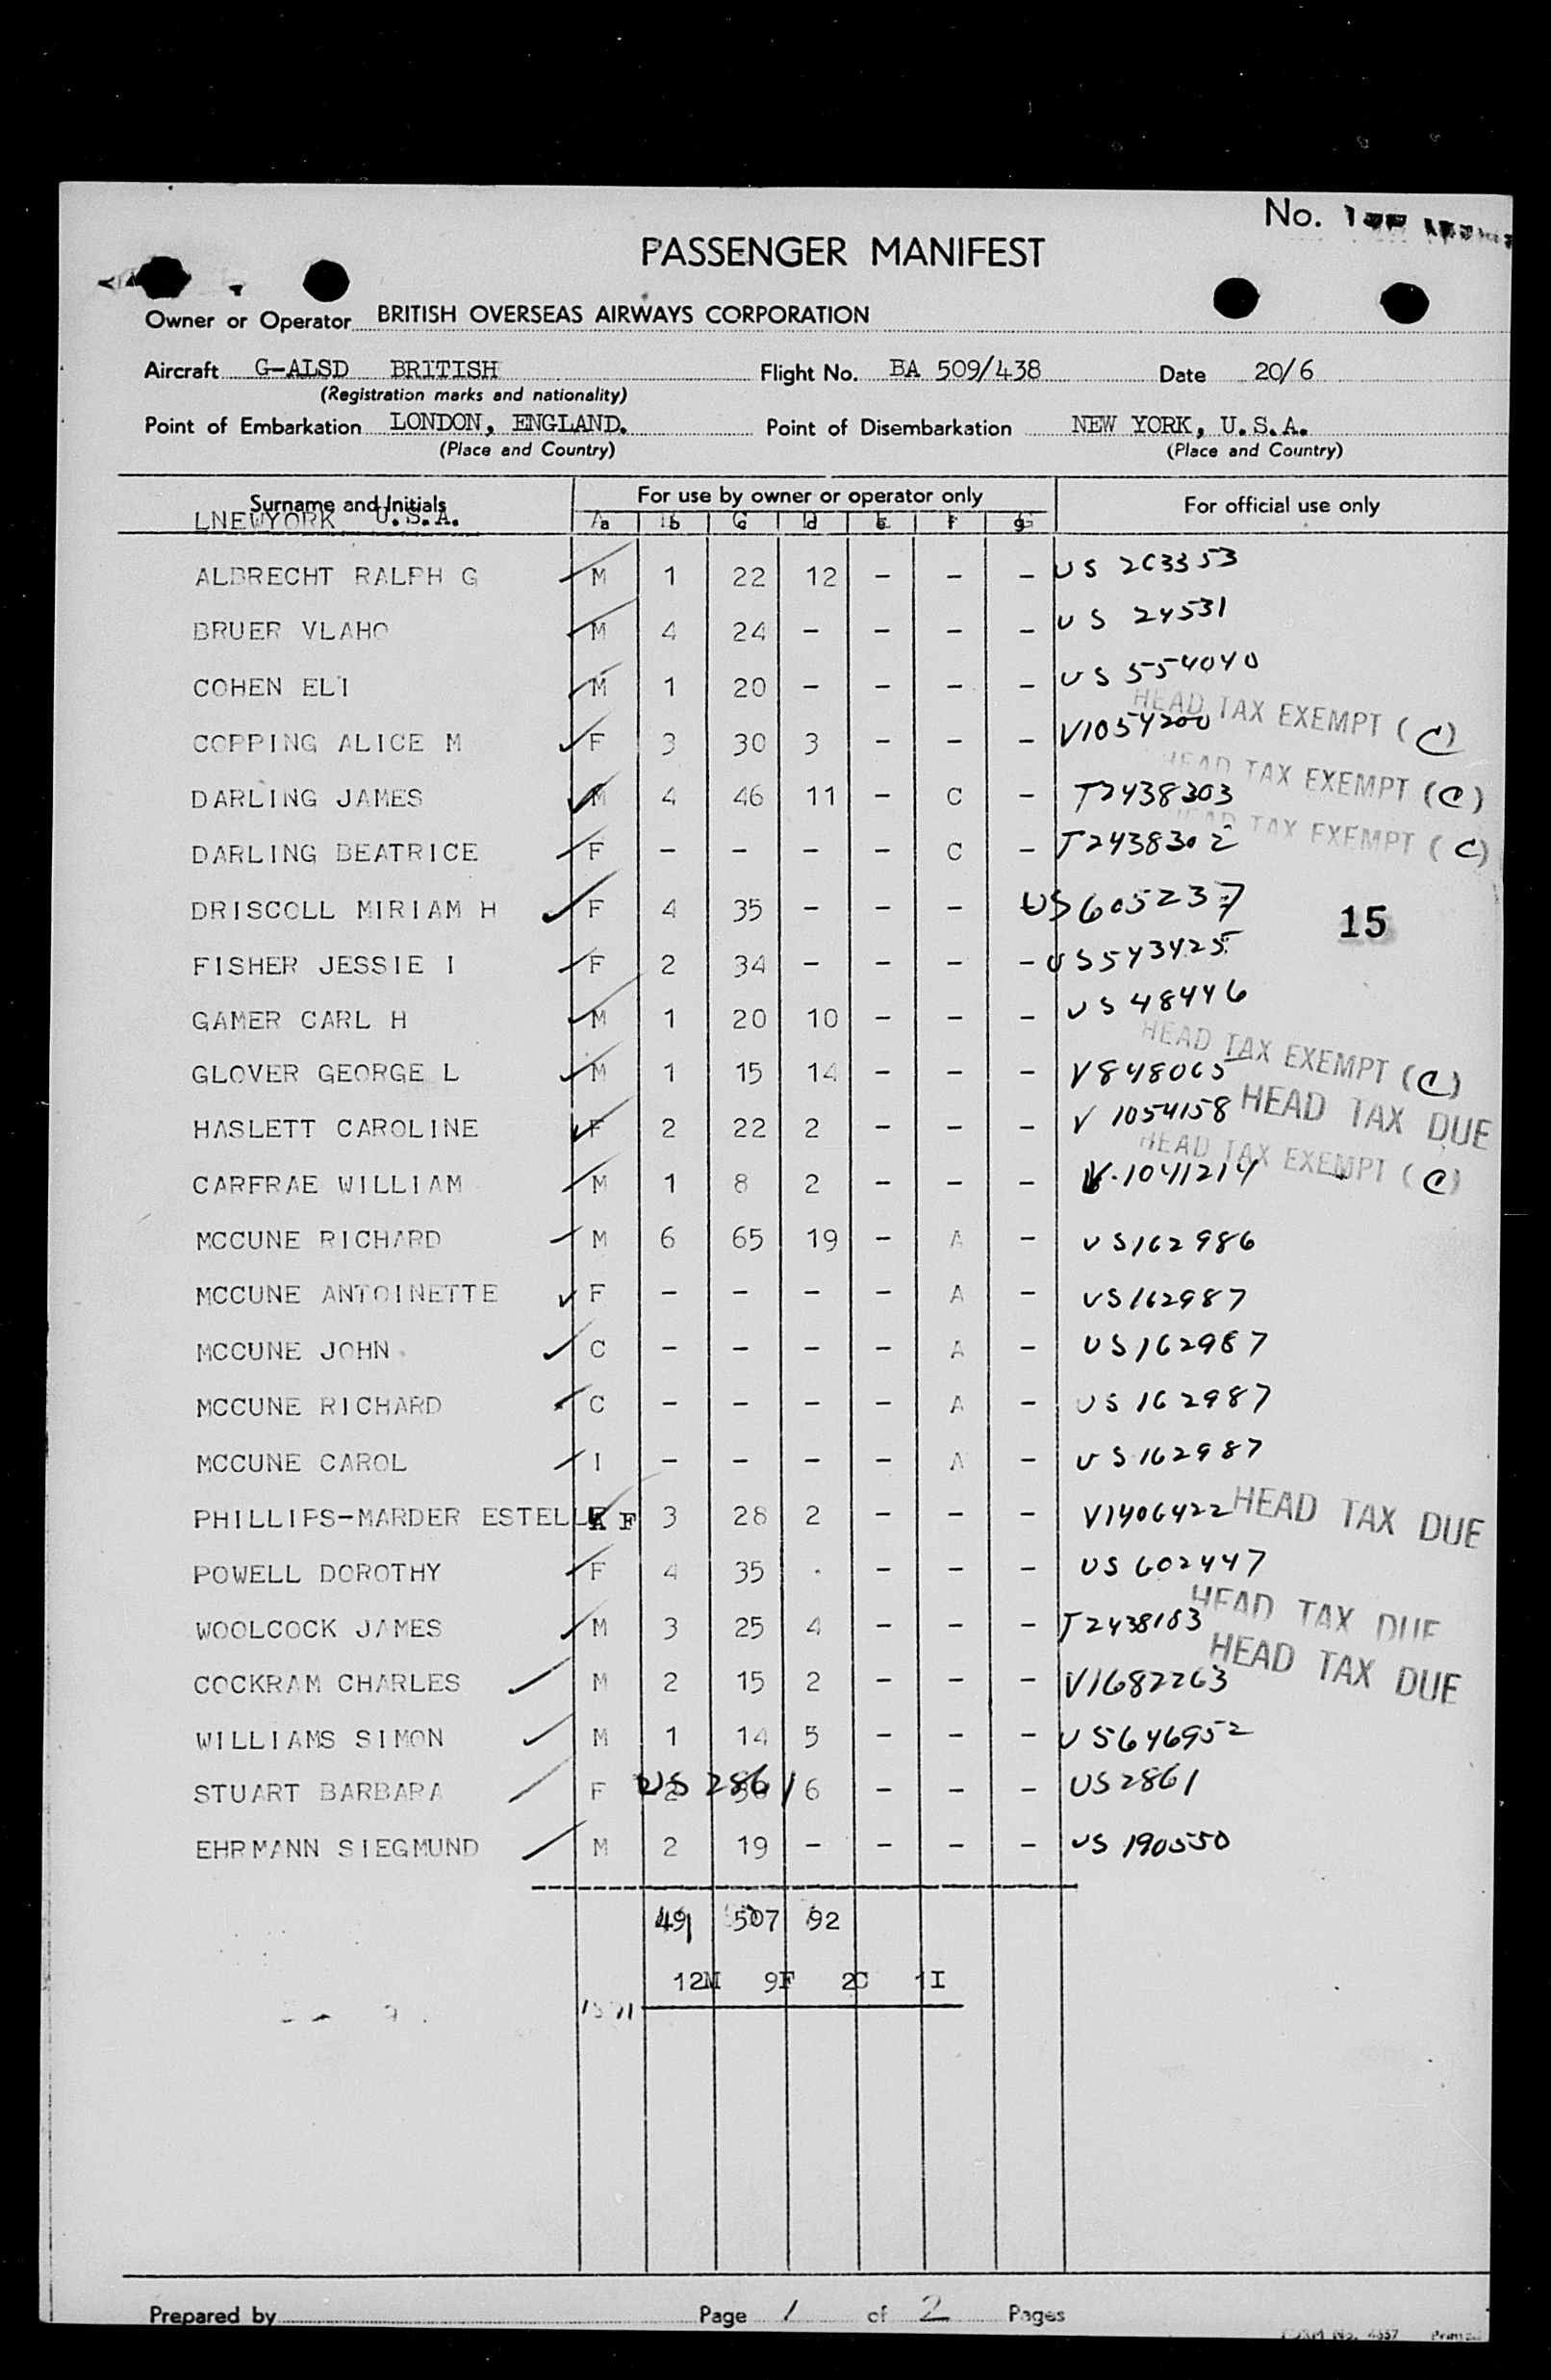 No.
PASSENGER MANIFEST
Owner or Operator BRITISH OVERSEAS AIRWAYS CORPORATION
Aircraft G-ALSD BRITISH Flight No. BA 509/438 Date 20/6
(Registration marks and nationality)
Point of Embarkation LONDON, ENGLAND. Point of Disembarkation NEW YORK, U.S.A.
(Place and Country) (Place and Country)
Surname and Initials For use by owner or operator only For official use only
LNEWYORK U.S.A. a b c d e f g
ALBRECHT RALPH G M 1 22 12 - - - US 263353
BRUER VLAHO M 4 24 - - - - US 24531
COHEN ELI M 1 20 - - - - US 554040
HEAD TAX EXEMPT (C)
COPPING ALICE M F 3 30 3 - - - V1054200
HEAD TAX EXEMPT (C)
DARLING JAMES M 4 46 11 - C - T2438303
HEAD TAX EXEMPT (C)
DARLING BEATRICE F - - - - C - T2438302
DRISCOLL MIRIAM H F 4 35 - - - US605237
15
FISHER JESSIE I F 2 34 - - - - US543425
GAMER CARL H M 1 20 10 - - - US 48446
HEAD TAX EXEMPT (C)
GLOVER GEORGE L M 1 15 14 - - - V848065
HASLETT CAROLINE F 2 22 2 - - - V 1054158 HEAD TAX DUE
HEAD TAX EXEMPT (C)
CARFRAE WILLIAM M 1 8 2 - - - V.1041214
MCCUNE RICHARD M 6 65 19 - A - US162986
MCCUNE ANTOINETTE F - - - - A - US162987
MCCUNE JOHN C - - - - A - US162987
MCCUNE RICHARD C - - - - A - US 162987
MCCUNE CAROL I - - - - A - US 162987
PHILLIPS-MARDER ESTELL F 3 28 2 - - - V1406422 HEAD TAX DUE
POWELL DOROTHY F 4 35 . - - - US 602447
WOOLCOCK JAMES M 3 25 4 - - - T2438183 HEAD TAX DUE
COCKRAM CHARLES M 2 15 2 - - - V1682263 HEAD TAX DUE
WILLIAMS SIMON M 1 14 5 - - - US646952
STUART BARBARA F US 2861 6 - - - US2861
EHRMANN SIEGMUND M 2 19 - - - - US 190550
49 507 92
12M 9F 2C 1I
Prepared by Page 1 of 2 Pages